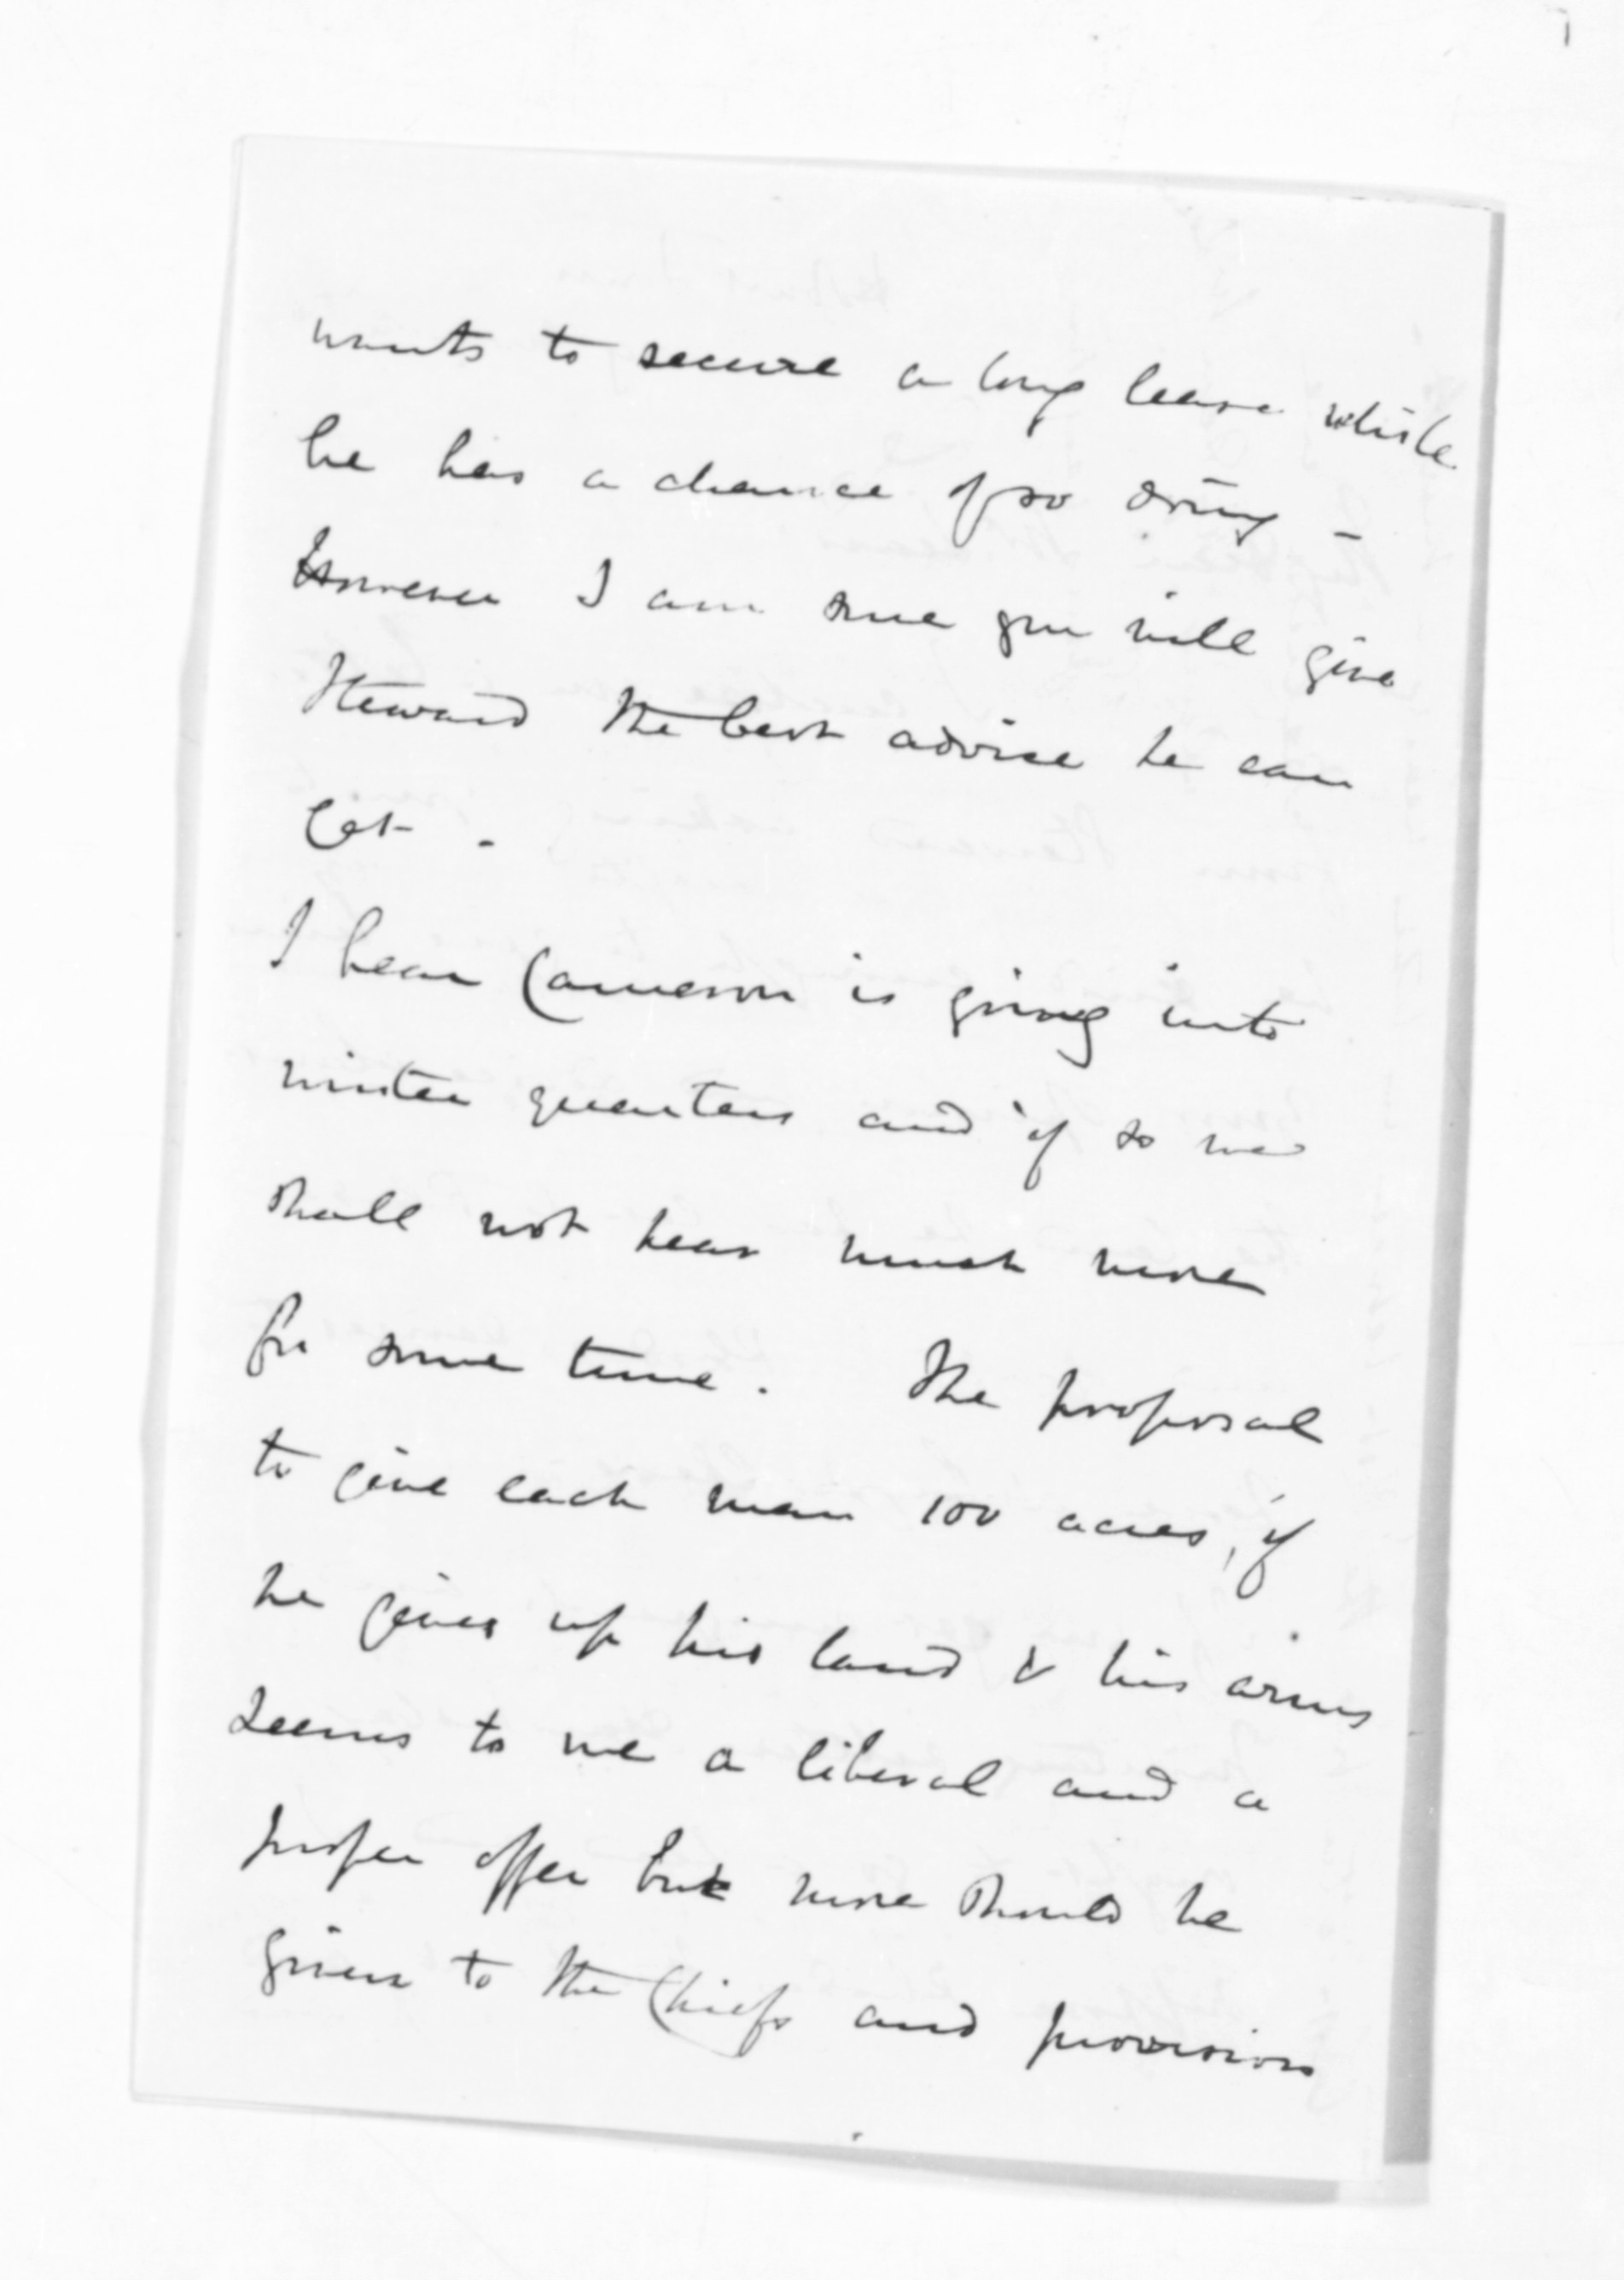 wants to secure a long lease while
he has a chance of so doing -
However I am sure you will give
Steward the best advice he can
Get -
I hear Cameron is going into
winter quarters and if so we
shall not hear much more
for some time. The proposal
to give each man 100 acres, if
he gives up his land & his arms
seems to me a liberal and a
proper offer but more should be
given to the Chiefs and provision